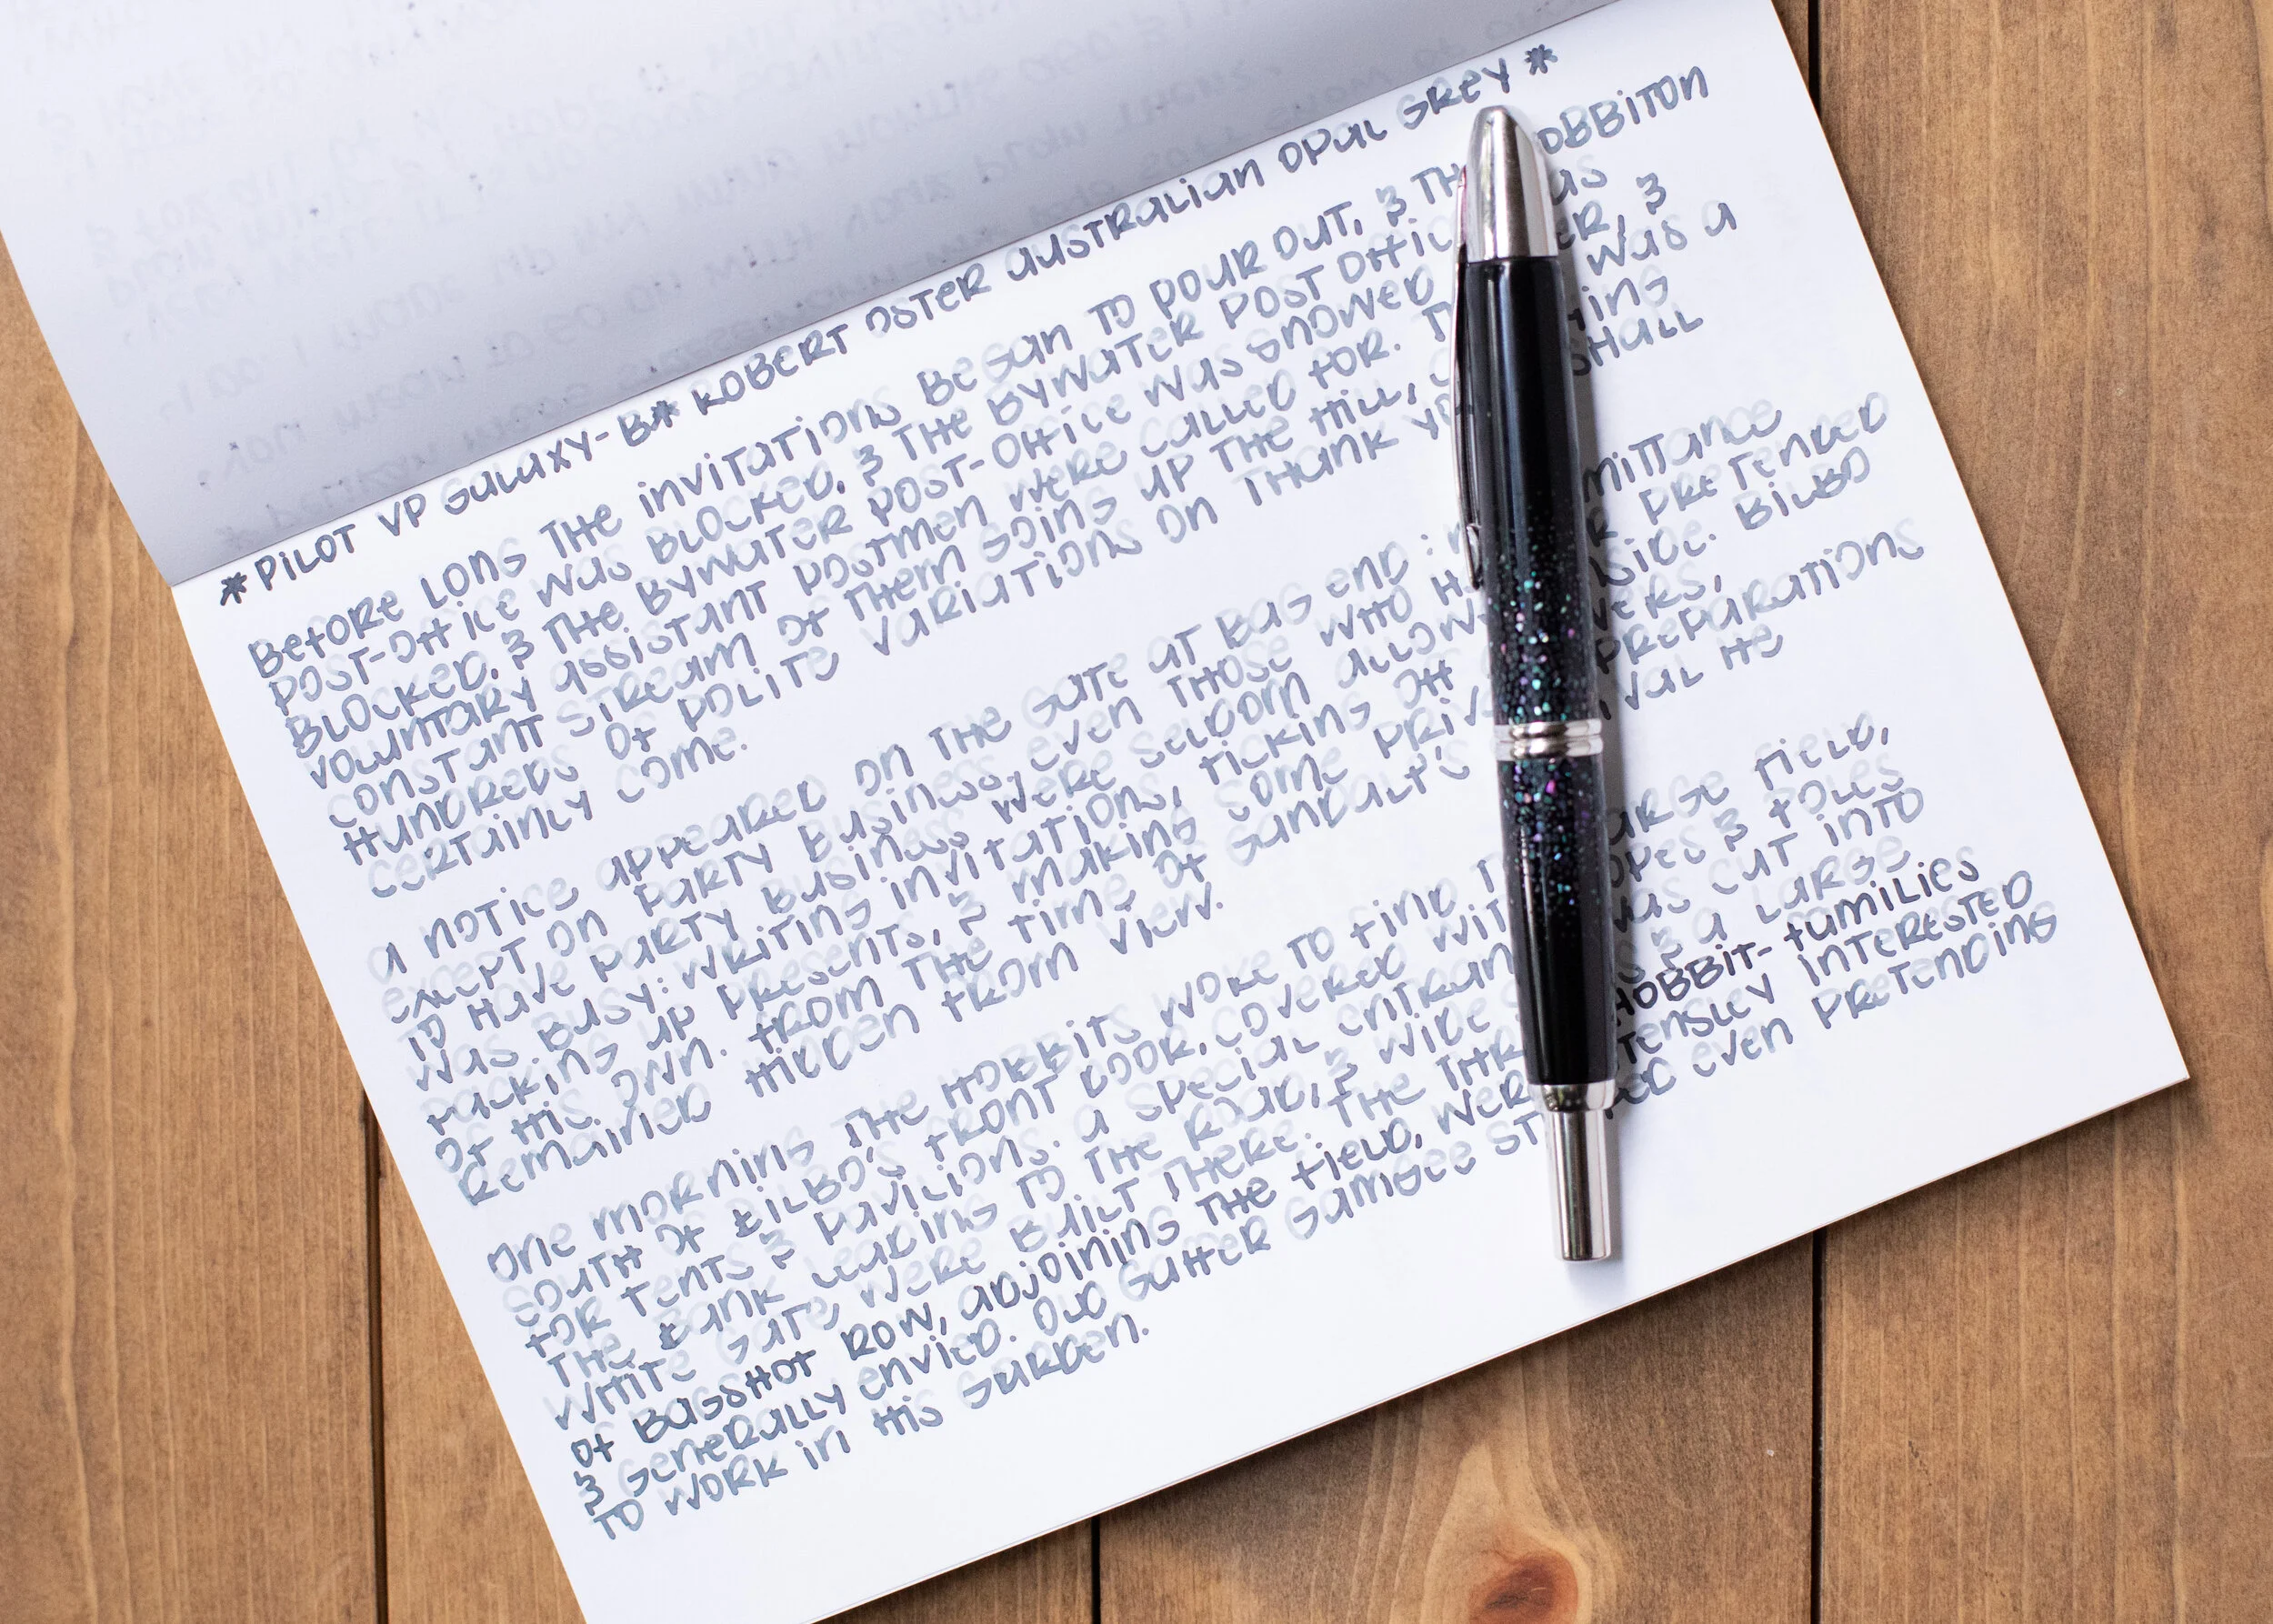 *PILOT VP GALAXY-B* ROBERT OSTER AUSTRALIAN OPAL GREY*
BEFORE LONG THE INVITATIONS BEGAN TO POUR OUT, & THE HOBBITON
POST-OFFICE WAS BLOCKED, & THE BYWATER POST OFFICE WAS
BLOCKED, & THE BYWATER POST-OFFICE WAS SNOWED UNDER, &
VOLUNTARY ASSISTANT POSTMEN WERE CALLED FOR. THERE WAS A
CONSTANT STREAM OF THEM GOING UP THE HILL, CARRYING
HUNDREDS OF POLITE VARIATIONS ON THANK YOU, I SHALL
CERTAINLY COME.
A NOTICE APPEARED ON THE GATE AT BAG END: NO ADMITTANCE
EXCEPT ON PARTY BUSINESS, EVEN THOSE WHO HAD OR PRETENDED
TO HAVE PARTY BUSINESS WERE SELDOM ALLOWED INSIDE. BILBO
WAS BUSY: WRITING INVITATIONS, TICKING OFF ANSWERS,
PACKING UP PRESENTS, & MAKING SOME PRIVATE PREPARATIONS
OF HIS OWN. FROM THE TIME OF GANDALF'S ARRIVAL HE
REMAINED HIDDEN FROM VIEW.
ONE MORNING THE HOBBITS WOKE TO FIND THE LARGE FIELD,
SOUTH OF BILBO'S FRONT DOOR, COVERED WITH ROPES & POLES
FOR TENTS & PAVILIONS. A SPECIAL ENTRANCE WAS CUT INTO
THE BANK LEADING TO THE ROAD, & WIDE STEPS & A LARGE
WHITE GATE WERE BUILT THERE. THE THREE HOBBIT-FAMILIES
OF BAGSHOT ROW, ADJOINING THE FIELD, WERE INTENSLEY INTERESTED
& GENERALLY ENVIED. OLD GAFFER GAMGEE STOPPED EVEN PRETENDING
TO WORK IN HIS GARDEN.